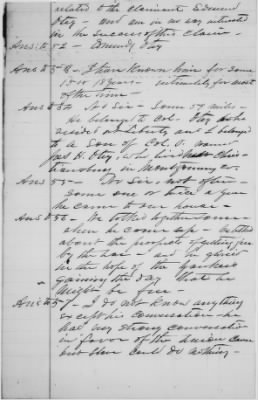 related to the claimant Edmund
Otey - and am in no way interested
in the success of this claim -
Ans: to 52 - Amundy Otey
Ans to 53 - I have known him for some
15 or 18 years - intimately for most
of the time -
Ans to 52 No Sir - Some 57 miles -
He belonged to Col. Otey who
resided at Liberty and I belonged
to a Son of Col. O. name
Jas H. Otey, who lived
in Montgomery -
Ans 55 - No Sir, not often -
Some one or twice a year
he came to our house -
Ans to 56 - We talked together some -
when he come up - talked
about the prospects of getting free
by the war - and in
in the hope of the Yankees
gaining the day that he
might be free -
Ans to 57 - I do not know anything
except his conversation - he
had very strong conversation
in favor of the Union cause
but slave could do nothing -